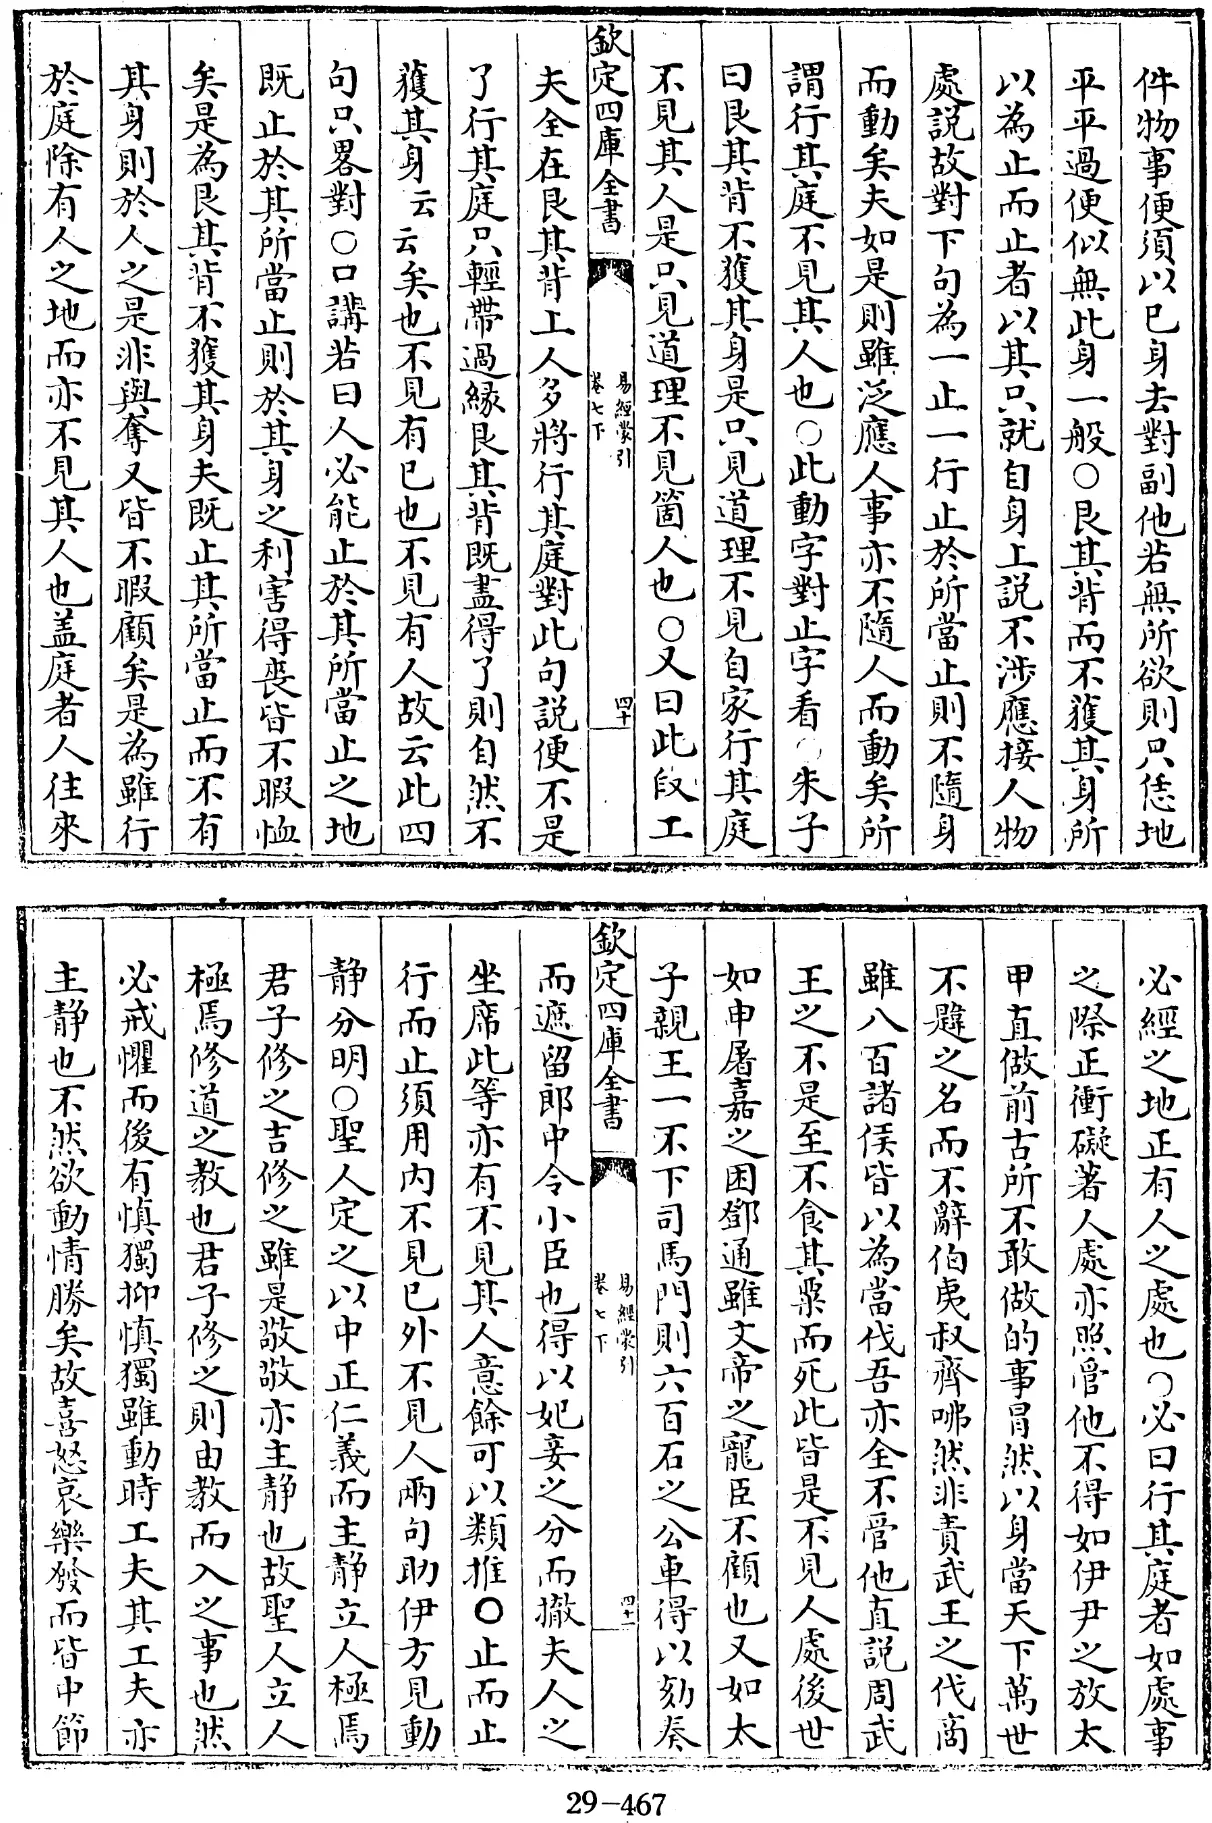 件物事便須以已身去對副他若無所欲則只恁地
平平過便似無此身一般○艮其背而不獲其身所
以為止而止者以其只就自身上説不涉應接人物
處説故對下句為一止一行止於所當止則不隨身
而動矣夫如是則雖泛應人事亦不隨人而動矣所
謂行其庭不見其人也○此動字對止字看○朱子
曰艮其背不獲其身是只見道理不見自家行其庭
不見其人是只見道理不見箇人也○又曰此段工
欽定四庫全書
易經蒙引
卷七下
四十
夫全在艮其背上人多將行其庭對此句説便不是
了行其庭只輕帶過緣艮其背既盡得了則自然不
獲其身云云矣也不見有已也不見有人故云此四
句只畧對○口講若曰人必能止於其所當止之地
既止於其所當止則於其身之利害得喪皆不暇恤
矣是為艮其背不獲其身夫既止其所當止而不有
其身則於人之是非與奪又皆不暇顧矣是為雖行
於庭除有人之地而亦不見其人也盖庭者人往來
必經之地正有人之處也○必曰行其庭者如處事
之際正衝礙著人處亦照管他不得如伊尹之放太
甲直做前古所不敢做的事冒然以身當天下萬世
不韙之名而不辭伯夷叔齊咈然非責武王之伐商
雖八百諸侯皆以為當伐吾亦全不管他直説周武
王之不是至不食其粟而死此皆是不見人處後世
如申屠嘉之困鄧通雖文帝之寵臣不顧也又如太
子親王一不下司馬門則六百石之公車得以劾奏
欽定四庫全書
易經蒙引
卷七下
四十一
而遮留郎中令小臣也得以妃妾之分而撤夫人之
坐席此等亦有不見其人意餘可以類推○止而止
行而止須用内不見已外不見人兩句助伊方見動
静分明○聖人定之以中正仁義而主静立人極焉
君子修之吉修之雖是敬敬亦主静也故聖人立人
極焉修道之教也君子修之則由教而入之事也然
必戒懼而後有慎獨抑慎獨雖動時工夫其工夫亦
主静也不然欲動情勝矣故喜怒哀樂發而皆中節
29-467